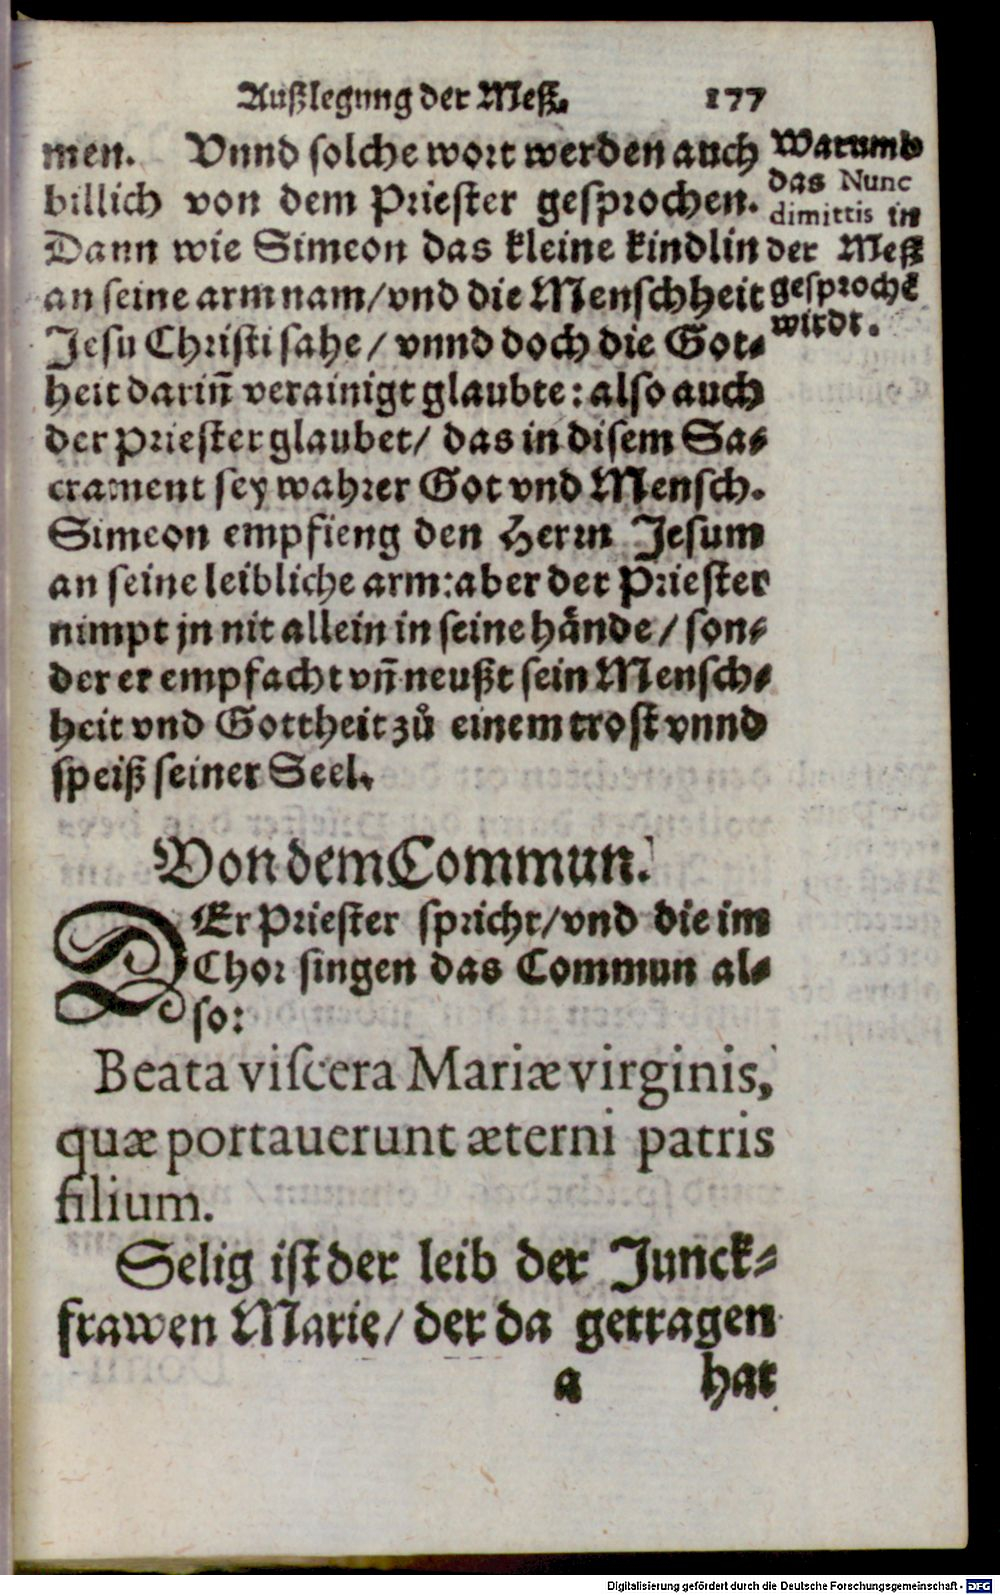 Außlegung der Meß. 177
men. Vnnd solche wort werden auch
billich von dem Priester gesprochen.
Dann wie Simeon das kleine kindlin
an seine arm nam/vnd die Menschheit
Jesu Christi sahe/ vnnd doch die Got⸗
heit dariñ verainigt glaubte: also auch
der Priester glaubet/ das in disem Sa⸗
crament sey wahrer Got vnd Mensch.
Simeon empfieng den Herrn Jesum
an seine leibliche arm: aber der Priester
nimpt jn nit allein in seine hände/ son⸗
der er empfacht vñ neußt sein Mensch⸗
heit vnd Gottheit zů einem trost vnnd
speiß seiner Seel.
Warumb
das Nunc
dimittis in
der Meß
gesprochẽ
wirdt.
Von dem Commun.
DEr Priester spricht/vnd die im
Chor singen das Commun al⸗
so:
Beata viſcera Mariæ virginis,
quæ portauerunt æterni patris
filium.
Selig ist der leib der Junck⸗
frawen Marie/ der da getragen
a hat
Digitalisierung gefördert durch die Deutsche Forschungsgemeinschaft - DFG